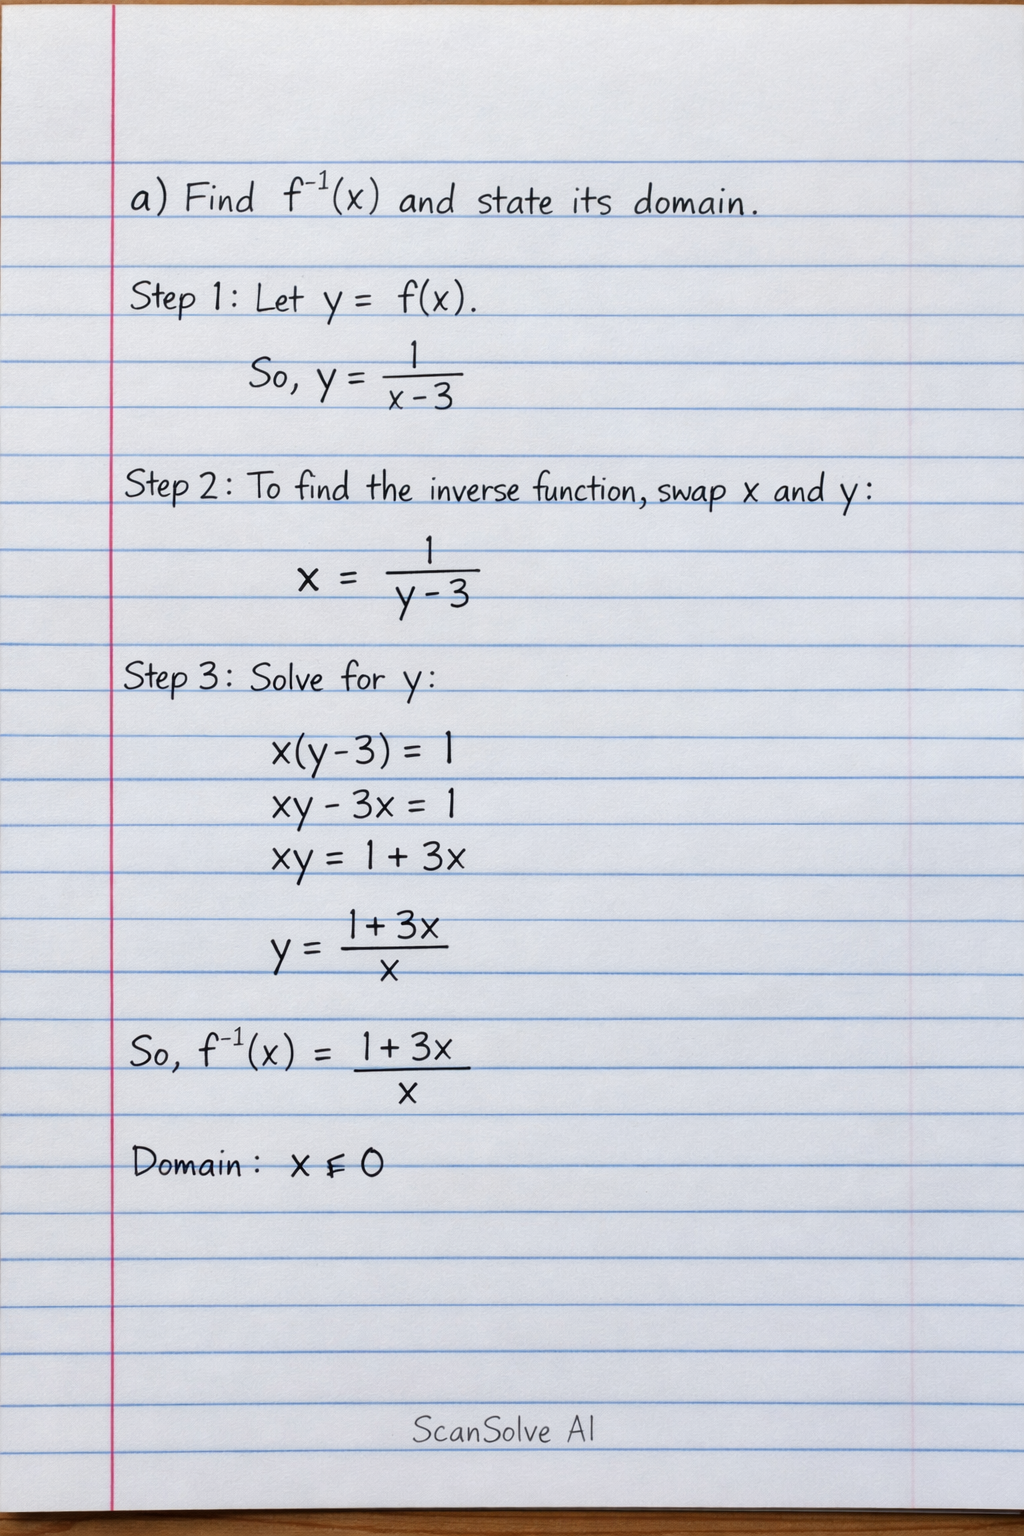 a) Find f⁻¹(x) and state its domain.
Step 1: Let y = f(x).
So, y = 1/(x - 3)
Step 2: To find the inverse function, swap x and y:
x = 1/(y - 3)
Step 3: Solve for y:
x(y - 3) = 1
xy - 3x = 1
xy = 1 + 3x
y = (1 + 3x)/x
So, f⁻¹(x) = (1 + 3x)/x
Domain: x 0
ScanSolve AI